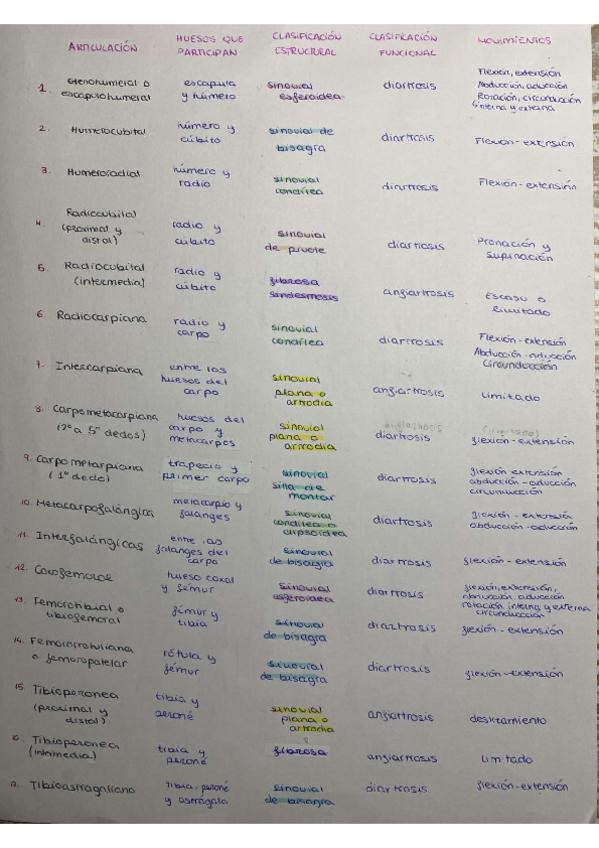 ARTICULACIÓN HUESOS QUE PARTICIPAN CLASIFICACIÓN ESTRUCTURAL CLASIFICACIÓN FUNCIONAL MOVIMIENTOS
1. Glenohumeral o escapulohumeral escápula y húmero sinovial esferoidea diartrosis Flexión, extensión Abducción, aducción Rotación, circundución interna y externa
2. Humerocubital húmero y cúbito sinovial de bisagra diartrosis Flexión-extensión
3. Humeroradial húmero y radio sinovial condílea diartrosis Flexión-extensión
4. Radiocubital (proximal y distal) radio y cúbito sinovial de pivote diartrosis Pronación y supinación
5. Radiocubital (intermedia) radio y cúbito fibrosa sindesmosis angiartrosis Escaso o limitado
6. Radiocarpiana radio y carpo sinovial condílea diartrosis Flexión-extensión Abducción-aducción Circunducción
7. Intercarpiana entre los huesos del carpo sinovial plana o artrodia angiartrosis Limitado
8. Carpometacarpiana (2º a 5º dedos) huesos del carpo y metacarpos sinovial plana o artrodia diartrosis flexión-extensión
9. Carpometarpiana (1º dedo) trapecio y primer carpo sinovial silla de montar diartrosis flexión extensión abducción-aducción circunducción
10. Metacarpofalángica metacarpio y falanges sinovial condílea o elipsoidea diartrosis flexión-extensión abducción-aducción
11. Interfalángicas entre las falanges del carpo sinovial de bisagra diartrosis flexión-extensión
12. Coxofemoral hueso coxal y fémur sinovial esferoidea diartrosis flexión, extensión, abducción, aducción rotación interna y externa circunducción
13. Femorotibial o tibiofemoral fémur y tibia sinovial de bisagra diartrosis flexión-extensión
14. Femorrotuliana o femoropatelar rótula y fémur sinovial de bisagra diartrosis flexión-extensión
15. Tibioperonea (proximal y distal) tibia y peroné sinovial plana o artrodia angiartrosis deslizamiento
16. Tibioperonea (intermedia) tibia y peroné fibrosa angiartrosis limitado
17. Tibioastragaliana tibia, peroné y astrágalo sinovial de bisagra diartrosis flexión-extensión